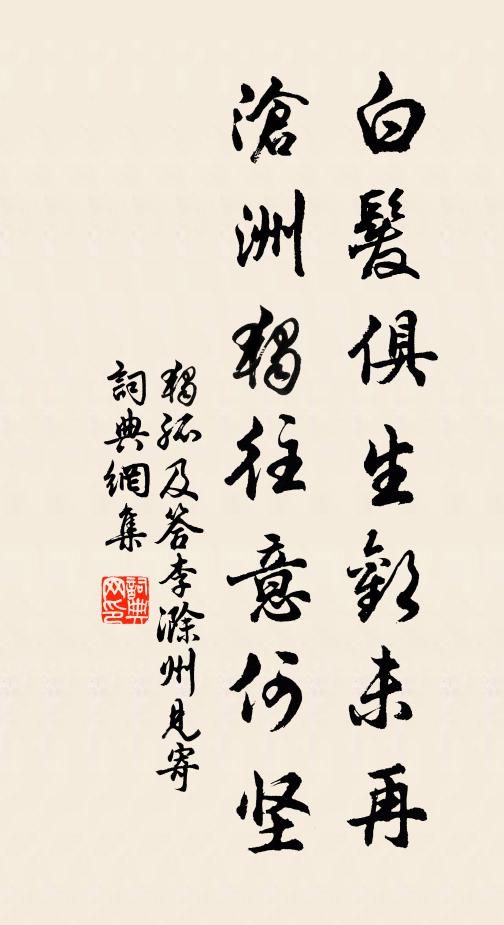 白髮俱生歡未再
滄洲獨往意何堅
獨孤及答李滁州見寄
詞典網集
詞典網印